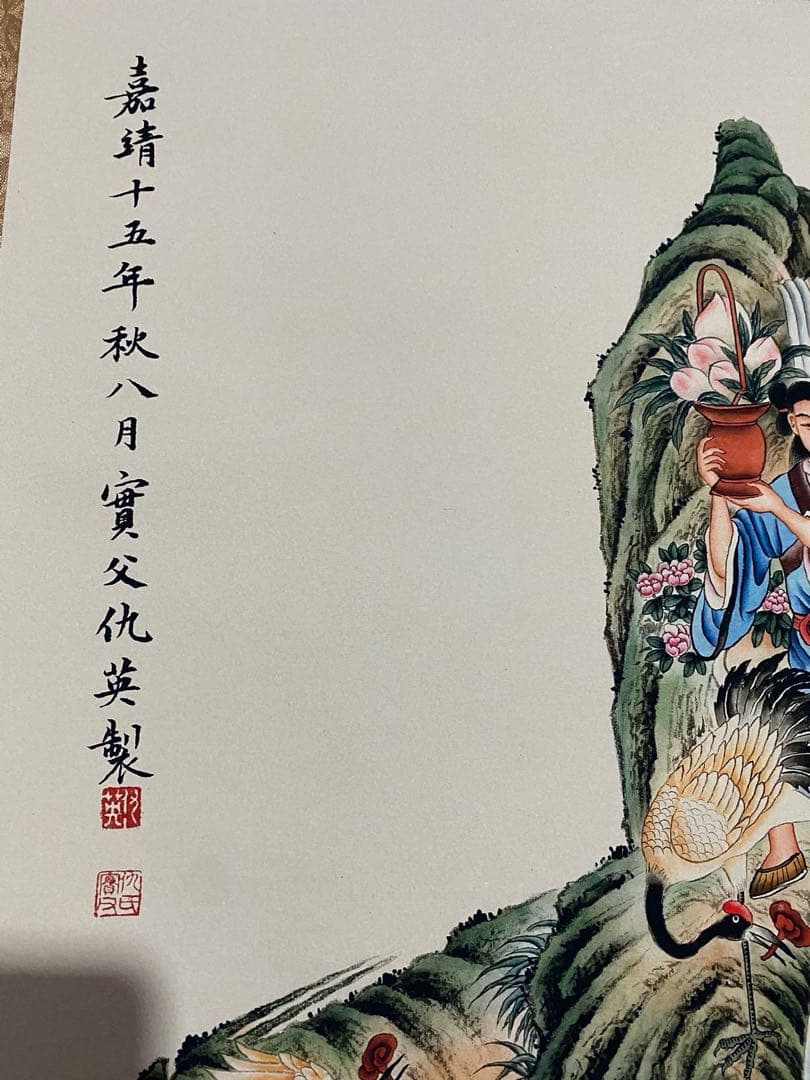 嘉靖十五年秋八月實父仇英製
仇英
仇氏實父